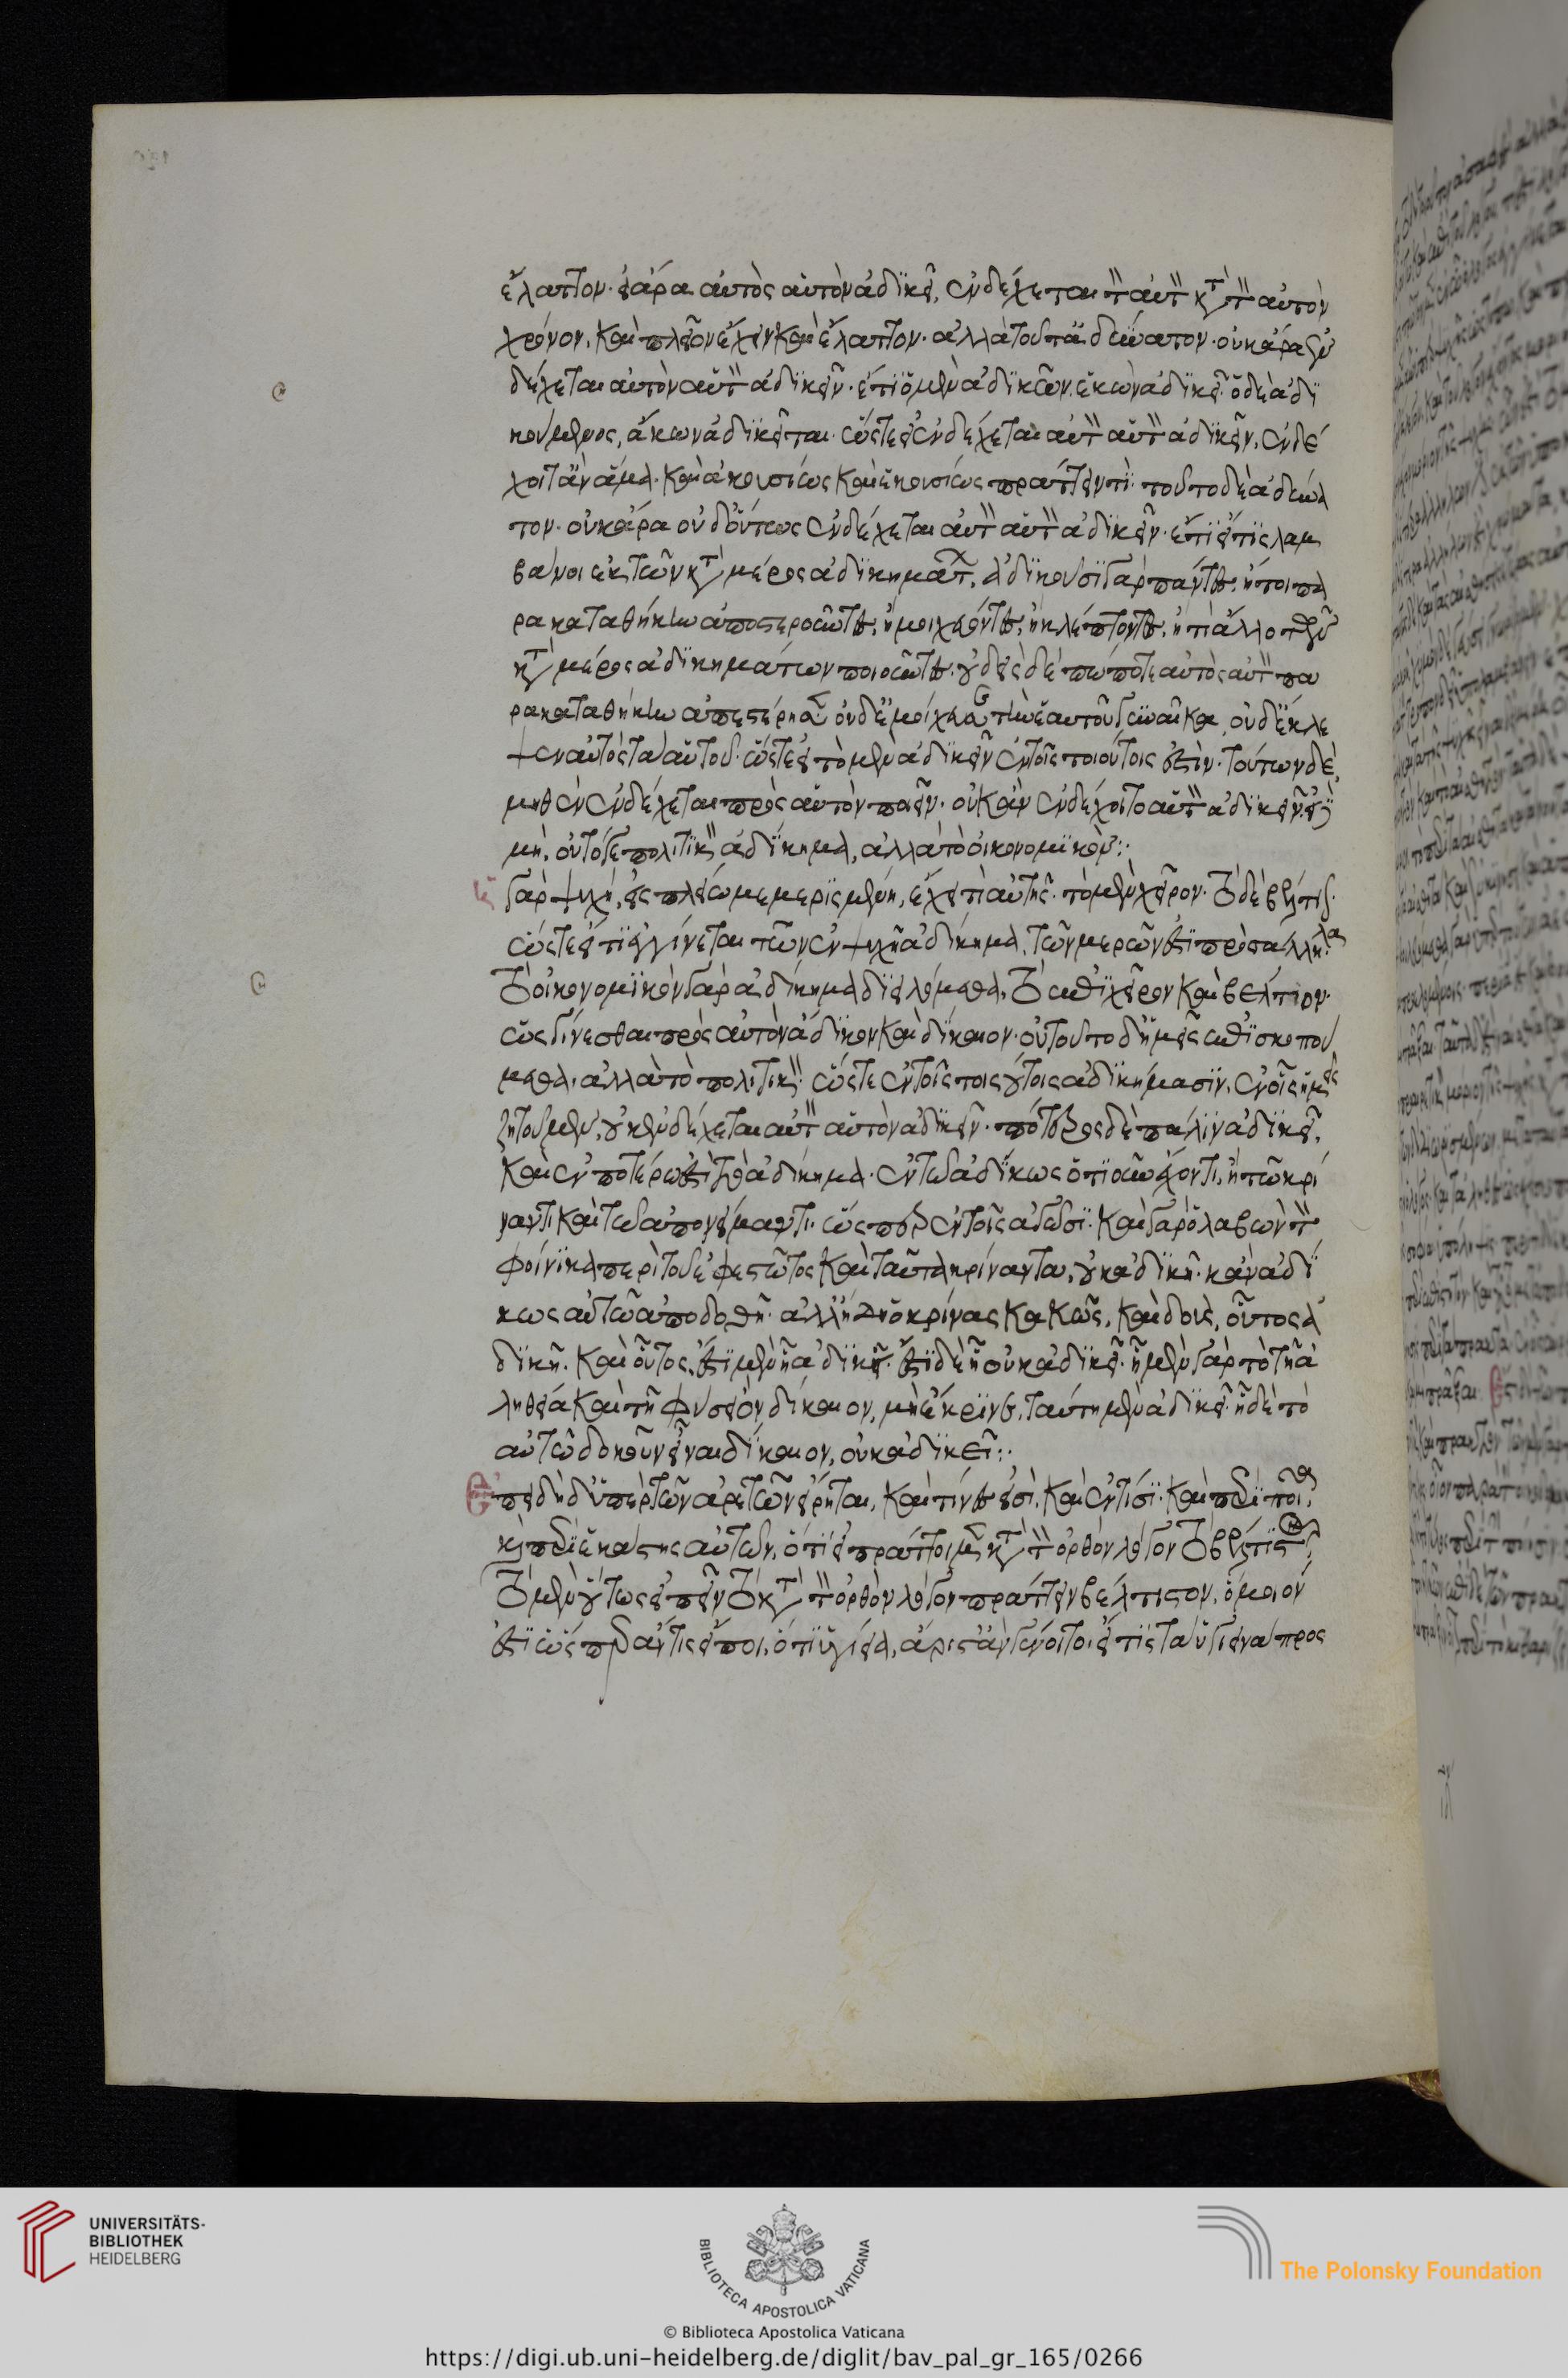 ἔλαττον. εἰ ἄρα αὐτὸς αὑτὸν ἀδικεῖ, ἐνδέχεται τὸν αὐτὸν κατὰ τὸν αὐτὸν
χρόνον, καὶ πλεῖον ἔχειν καὶ ἔλαττον. ἀλλὰ τοῦτο ἀδύνατον. οὐκ ἄρα ἐν
δέχεται αὐτὸν αὑτὸν ἀδικεῖν. ἔτι ὁ μὲν ἀδικῶν, ἑκὼν ἀδικεῖ. ὁ δὲ ἀδι
κούμενος, ἄκων ἀδικεῖται. ὥστε εἰ ἐνδέχεται αὐτὸν αὑτὸν ἀδικεῖν, ἐνδέ
χοιτ' ἂν ἅμα. καὶ ἀκουσίως καὶ ἑκουσίως πράττειν τί. τοῦτο δὲ ἀδύνα
τον. οὐκ ἄρα οὐδ' οὕτως ἐνδέχεται αὐτὸν αὑτὸν ἀδικεῖν. ἔτι εἴ τις λαμ
βάνοι ἐκ τῶν κατὰ μέρος ἀδικημάτων, ἀδικοῦσι γὰρ πάντες, ἤτοι πα
ρακαταθήκην ἀποστεροῦντες, ἢ μοιχεύοντες, ἢ κλέπτοντες, ἤ τι ἄλλο τῶν
κατὰ μέρος ἀδικημάτων ποιοῦντες. οὐδεὶς δὲ πώποτε αὐτὸς αὑτὸν πα
ρακαταθήκην ἀπεστέρησεν οὐδ' ἐμοίχευσε τὴν ἑαυτοῦ γυναῖκα, οὐδ' ἔκλε
ψεν αὐτὸς τὰ αὑτοῦ. ὥστε εἰ τὸ μὲν ἀδικεῖν ἐν τοῖς τοιούτοις ἐστὶν. τούτων δὲ
μηθὲν ἐνδέχεται πρὸς αὑτὸν ποιεῖν. οὐκ ἂν ἐνδέχοιτο αὑτὸν ἀδικεῖν. εἰ δὲ
μὴ, οὔ τό γε πολιτικὸν ἀδίκημα, ἀλλὰ τὸ οἰκονομικόν:
ἡ γὰρ ψυχὴ, εἰς πλείω μεμερισμένη, ἔχει τι αὑτῆς. τὸ μὲν χεῖρον. τὸ δὲ βέλτιον.
ὥστε εἴ τι ἐγγίνεται τῶν ἐν ψυχῇ ἀδίκημα, τῶν μερῶν ἐστι πρὸς ἄλληλα
τὸ οἰκονομικὸν γὰρ ἀδίκημα διειλόμεθα, τὸ ἐπὶ χεῖρον καὶ βέλτιον.
ὡς γίνεσθαι πρὸς αὑτὸν ἄδικον καὶ δίκαιον. οὐ τοῦτο δ' ἡμεῖς ἐπισκοπού
μεθα. ἀλλὰ τὸ πολιτικόν. ὥστε ἐν τοῖς τοιούτοις ἀδικήμασιν, ἐν οἷς ἡμεῖς
ζητοῦμεν, οὐκ ἐνδέχεται αὐτὸν αὑτὸν ἀδικεῖν. πότερος δὲ πάλιν ἀδικεῖ,
καὶ ἐν ποτέρῳ ἐστὶ τὸ ἀδίκημα. ἐν τῷ ἀδίκως ὁτιοῦν ἔχοντι, ἢ τῶ κρί
ναντι καὶ τῷ ἀπονείμαντι. ὥσπερ ἐν τοῖς ἀγῶσι. καὶ γὰρ ὁ λαβὼν τὸν
φοίνικα περὶ τοῦ ἐφεστῶτος καὶ ταῦτα κρίναντα, οὐκ ἀδικεῖ. κἂν ἀδί
κως αὐτῶ ἀποδοθῆ. ἀλλ' ἤδη ὁ κρίνας κακῶς, καὶ δοὺς, οὗτος ἀ
δικεῖ. καὶ οὗτος, ἔστι μὲν ᾗ ἀδικεῖ. ἔστι δὲ ᾗ οὐκ ἀδικεῖ. ᾗ μὲν γὰρ τὸ τῆ ἀ
ληθείᾳ καὶ τῆ φύσει ὂν δίκαιον, μὴ ἔκρινε, ταύτη μὲν ἀδικεῖ. ᾗ δὲ τὸ
αὐτῷ δοκοῦν εἶναι δίκαιον, οὐκ ἀδικεῖ:
Ἐπεὶ δ' ὑπὲρ τῶν ἀρετῶν εἴρηται, καὶ τίνες εἰσὶ, καὶ ἐν τίσι. καὶ περὶ ποῖα,
καὶ περὶ ἑκάστης αὐτῶν, ὅτι εἰ πράττοιμεν κατὰ τὸν ὀρθὸν λόγον τὸ βέλτιστον,
τὸ μὲν οὕτως εἰπεῖν τὸ κατὰ τὸν ὀρθὸν λόγον πράττειν βέλτιστον, ὅμοιον
ἐστι ὥσπερ ἄν τις εἴποι, ὅτι ὑγίεια, ἄριστ' ἂν γένοιτο εἴ τις τὰ ὑγιεινὰ προς
UNIVERSITÄTS-
BIBLIOTHEK
HEIDELBERG
BIBLIOTECA APOSTOLICA VATICANA
The Polonsky Foundation
© Biblioteca Apostolica Vaticana
https://digi.ub.uni-heidelberg.de/diglit/bav_pal_gr_165/0266